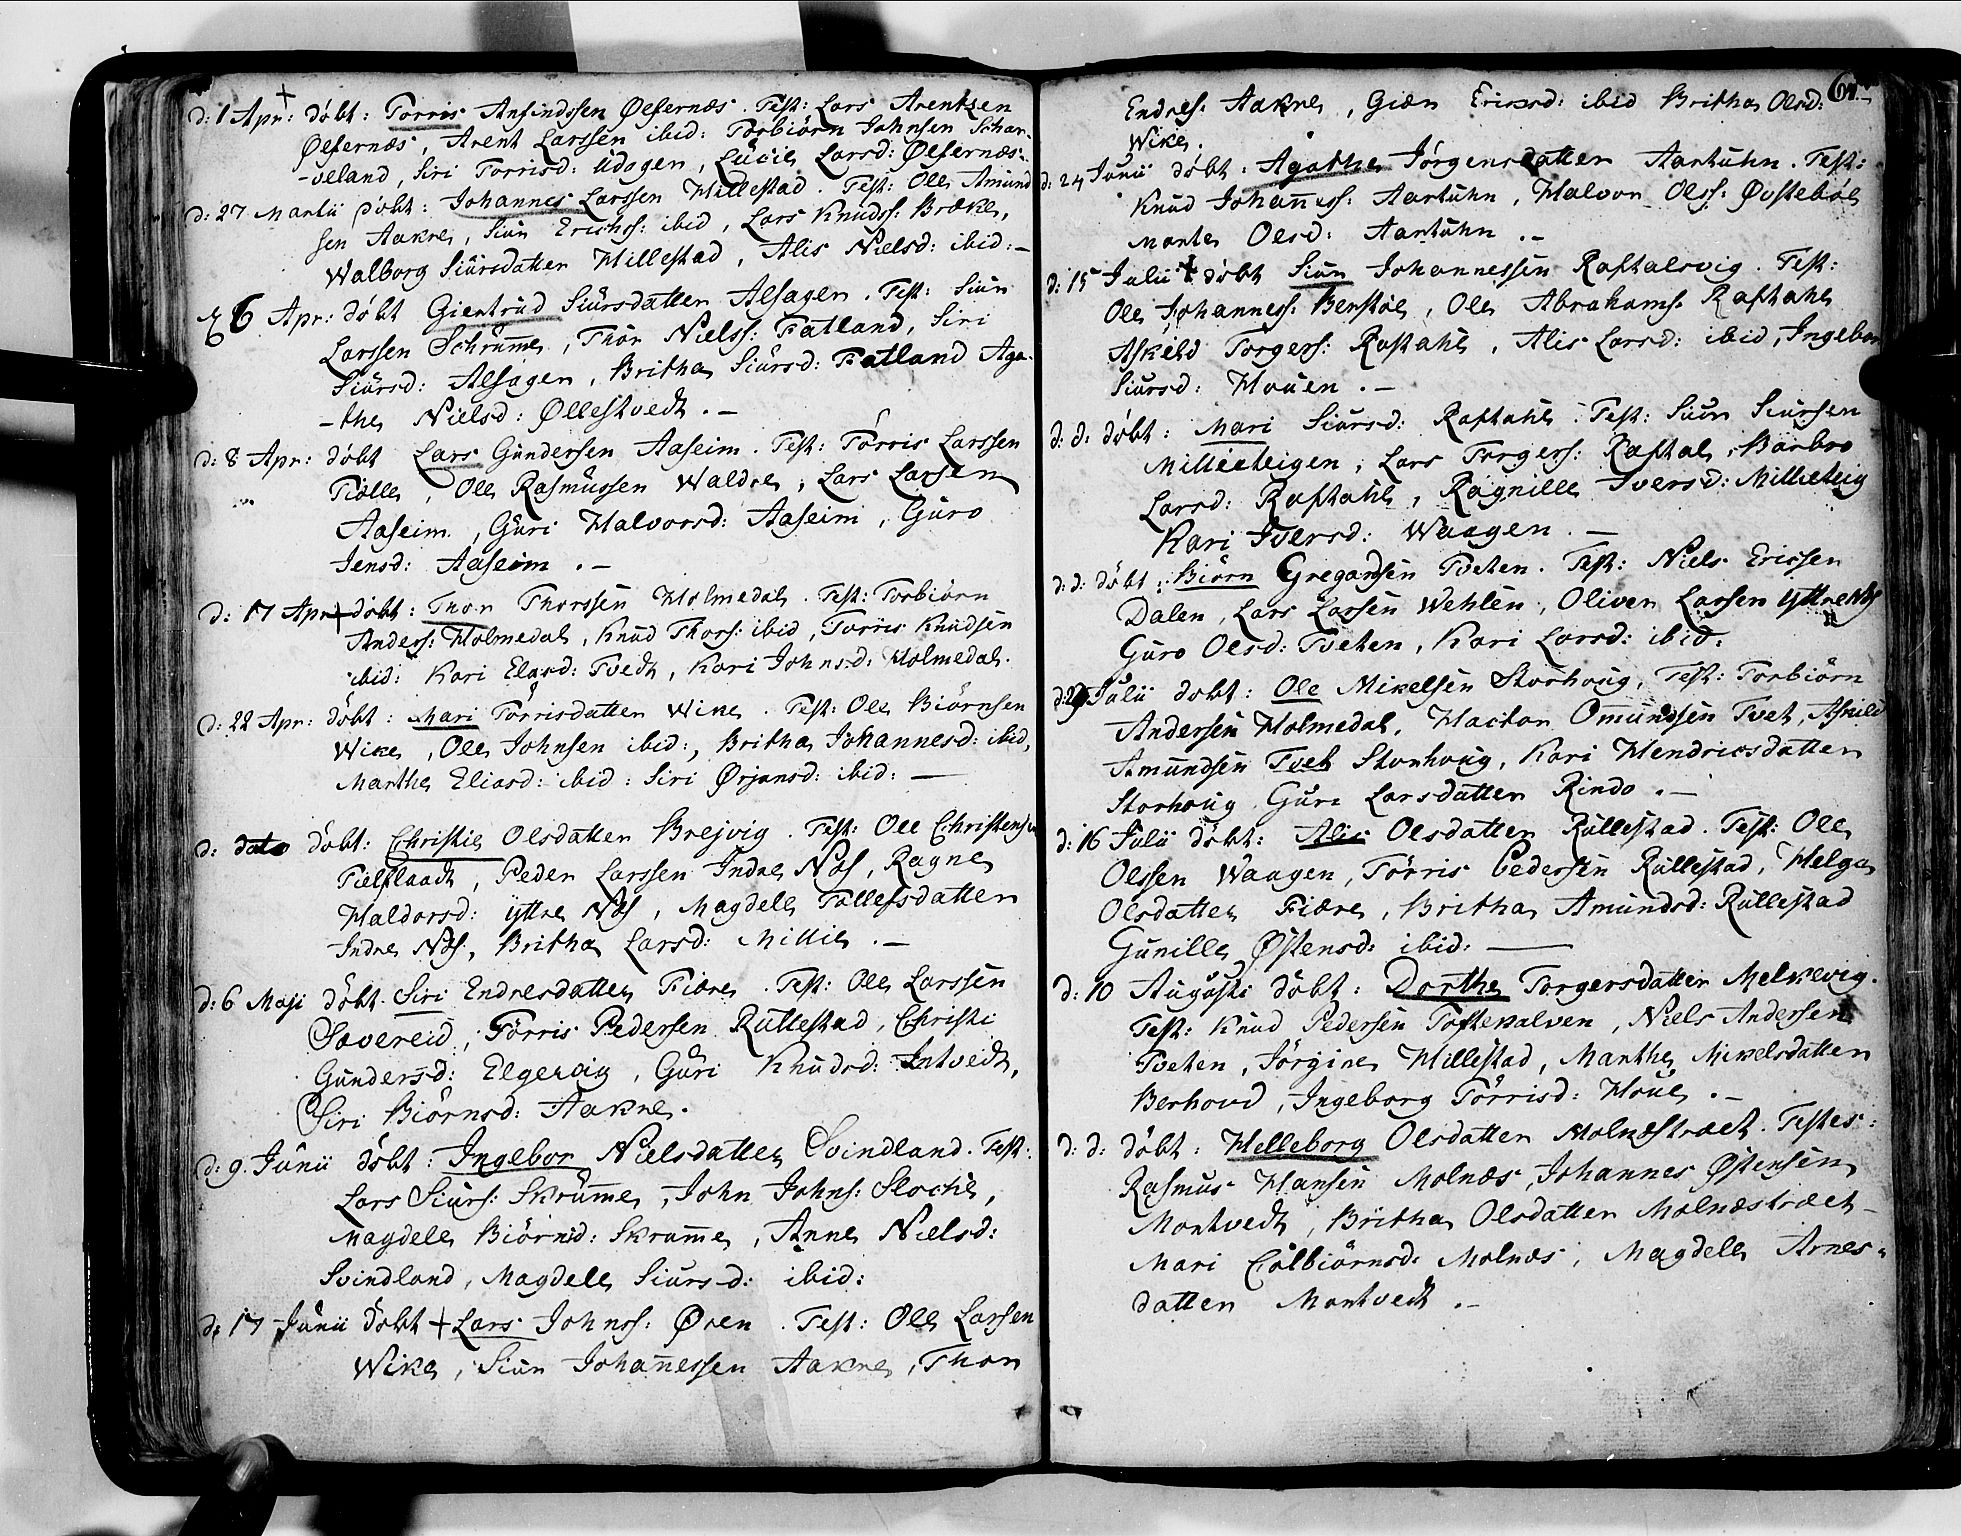 d: 1 Apr: døbt: Torris Anfindssen Øefernæs. Test: Lars Arentzen
Øefernæs, Arent Larssen ibid: Torbiörn Johnsen Schar-
-veland, Siri Torrisd: Udogen, Lücie Larsd: Øefernæs.
d: 27 Martii døbt: Johannes Larssen Hillestad. Test: Ole Amund
sen Aakre, Siur Erichss: ibid, Lars Knudss: Bræke,
Walborg Siürsdatter Hillestad, Alis Nielsd: ibid:-
6 Apr: døbt Giertrud Siürsdatter Alsager. Test: Siur
Larssen Schrümme, Thor Nielss: Fatland, Siri
Siürsd: Alsager, Britha Siürsd: Fatland Aga-
-the Nielsd: Øllestvedt.-
d: 8 Apr: døbt Lars Gündersen Aaseim. Test: Törris Larssen
Tiölle, Ole Rasmüssen Waldre, Lars Larsen
Aaseim, Güri Halvorsd: Aaseim, Güro
Jensd: Aaseim.-
d: 17 Apr + døbt: Thor Thorssen Holmedal. Test: Torbiörn
Anders: Holmedal, Knud Thors: ibid, Torris Knudsen
ibid: Kari Elasd: Tvedt, Kari Johnsd: Holmedal.
d: 22 Apr: døbt: Mari Törrisdatter Wike. Test: Ole Biörnsen
Wike, Ole Johnsen ibid:, Britha Johannesd: ibid,
Marthe Eliasd: ibid: Siri Ørjansd: ibid:-
d: dato døbt: Christie Olsdatter Brejvig. Test: Ole Christensen
Fielflaadt, Peder Larssen Indre Næs, Ragne
Haldorsd: yttre Næs, Magdele Tollefsdatter
Indre Næs, Britha Larsd: Millie.-
d: 6 Maji døbt. Siri Endresdatter Fiære. Test: Ole Larssen
Søvereid, Törris Pedersen Rüllestad, Christi
Gündersd: Elgervig, Güri Knudsd: Intvedt,
Siri Biörnsd: Aakre.
d: 9. Junii døbt: Ingebor Nielsdatter Svindland. Test:
Lars Siurs: Skrümme, John Johns: Slochie,
Magdele Biörnsd: Skrumme, Anne Nielsd:
Svindland, Magdele Siursd: ibid:
d: 17 Junii døbt + Lars Johnss: Øren. Test: Ole Larsen
Wike, Siur Johannessen Aakre, Thor
Endres: Aakre, Giær Ericsd: ibid Britha Olsd:
Wike.
d: 24 Junii døbt: Agathe Jörgensdatter Aartühn. Test:
Knud Johanness: Aartühn, Halvor Olss: Øvstebøe
Marte Olsd: Aartühn.-
d: 15 Julii + døbt Siur Johannessen Raftalsvig. Test:
Ole Johanness: Berstøl, Ole Abrahams. Raftahl
Askild Torgers: Raftahl, Alis Larsd: ibid, Ingebor
Siursd: Houen.-
d: d: døbt: Mari Siursd: Raftahl. Test: Siur Siursen
Millieteigen, Lars Torgers: Raftal, Barbro
Larsd: Raftahl, Ragnille Iversd: Millieteig
Kari Iversd: Waagen.-
d: d: døbt: Biörn Gregarsen Tveten. Test: Niels Ericsen
Dalen, Lars Larsen Wehlen, Oliver Larsen yttre Næs
Guro Olsd: Tveten, Kari Larsd: ibid.
d: 29 Julii døbt: Ole Mikelsen Storhoug, Test: Torbiörn
Andersen Holmedal, Hactor Omundsen Tvet, Askild
Amundsen Tvet Storhoug, Kari Hendricsdatter
Storhoug Guri Larsdatter Rindo.-
d: 16 Julii døbt: Alis Olsdatter Rüllestad. Test: Ole
Olssen Waagen, Törris Pedersen Rüllestad, Helga
Olsdatter Fiære, Britha Amündsd: Rüllestad
Gunille Østensd: ibid:-
d: 10 Augusti døbt: Dorthe Torgersdatter Melkevig.
Test: Knud Pedersen Toftekalven, Niels Andersen
Tveten, Jörgine Hillestad, Marthe Mikelsdatter
Berhoud, Ingeborg Törrisd: Houe.-
d: d: døbt: Helleborg Olsdatter Molnæstræet. Testes:
Rasmus Hansen Molnæs, Johannes Østensen
Mortvedt, Britha Olsdatter Molnæstræet-
Mari Colbiörnsd: Molnæs, Magdele Arnes-
datter Mortvedt.-